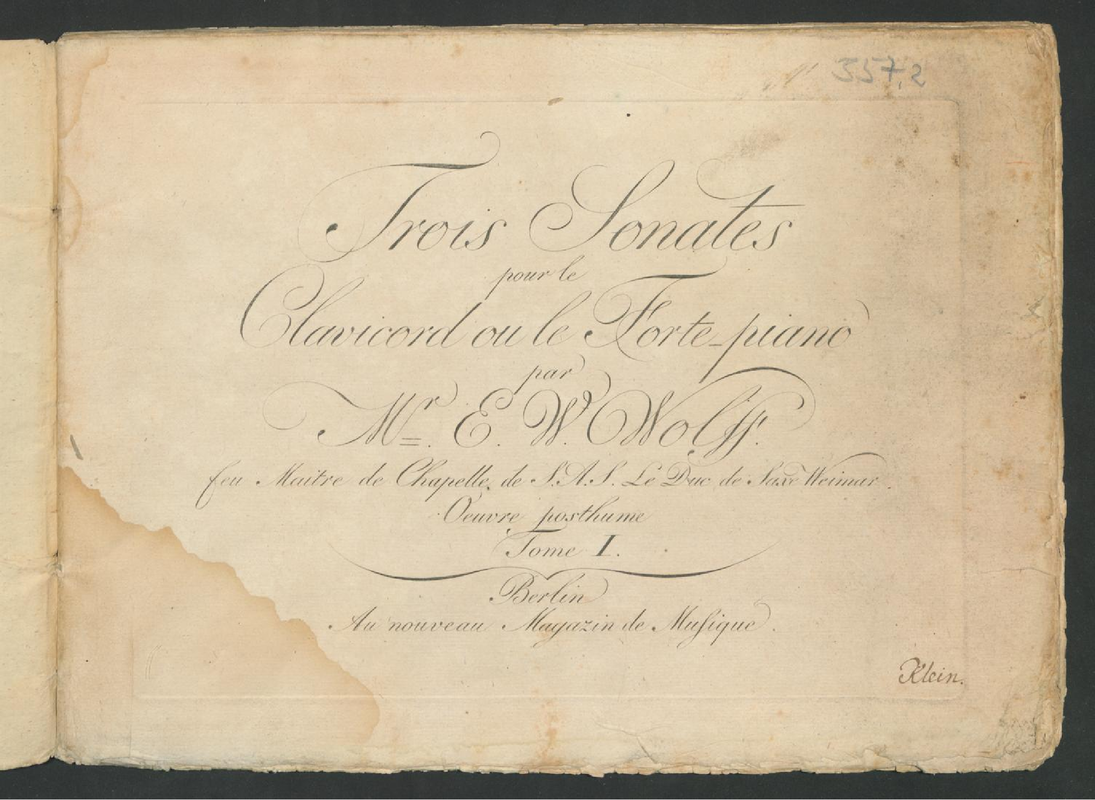 357,2
Trois Sonates
pour le
Clavicord ou le Forte-piano
par
Mr. E. W. Wolff.
feu Maitre de Chapelle, de S.A.S. Le Duc de Saxe Weimar.
Oeuvre posthume
Tome I.
Berlin
Au nouveau Magazin de Musique.
Klein.